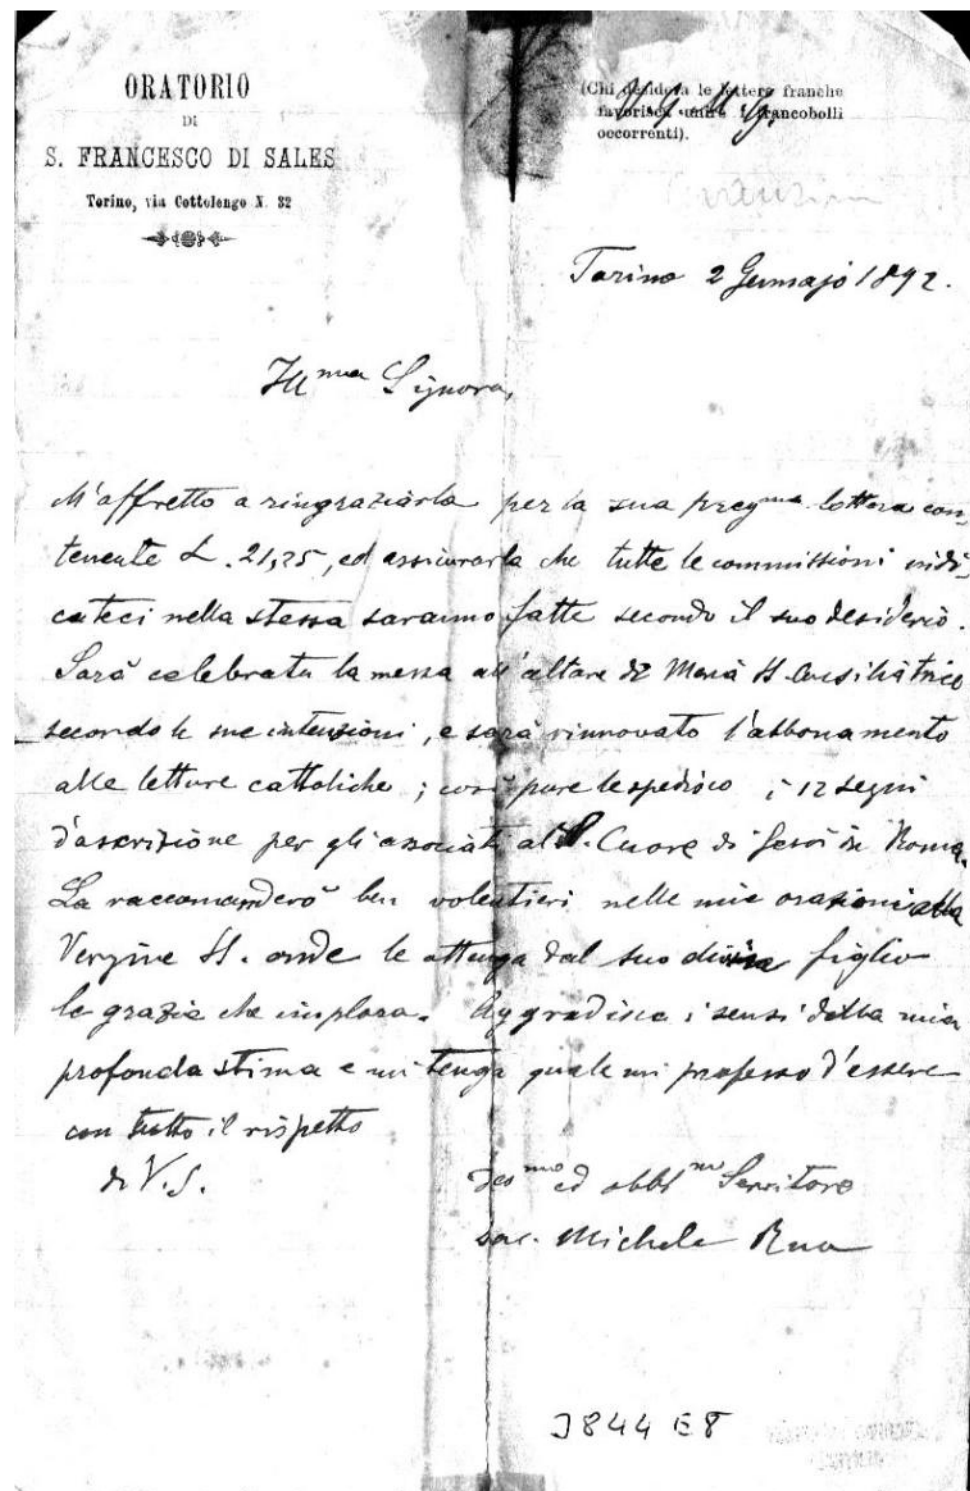 ORATORIO
DI
S. FRANCESCO DI SALES
Torino, via Cottolengo N. 32
(Chi desidera le lettere franche
favorisca unire i francobolli
occorrenti).
Torino 2 Gennajo 1892.
Ill.ma Signora,
M'affretto a ringraziarla per la sua preg.ma lettera con-
tenente L. 21,25, ed assicurarla che tutte le commissioni indi-
cateci nella stessa saranno fatte secondo il suo desiderio.
Sarà celebrata la messa all'altare di Maria SS. Ausiliatrice
secondo le sue intenzioni, e sarà rinnovato l'abbonamento
alle letture cattoliche; così pure le spedisco i 12 segni
d'ascrizione per gli associati al S. Cuore di Gesù in Roma.
La raccomanderò ben volentieri nelle mie orazioni alla
Vergine SS. onde le ottenga dal suo divin figlio
le grazie che implora. Aggradisca i sensi della mia
profonda stima e mi tenga quale mi professo d'essere
con tutto il rispetto
di V. S.
Dev.mo ed obbl.mo Servitore
Sac. Michele Rua
3844 E8